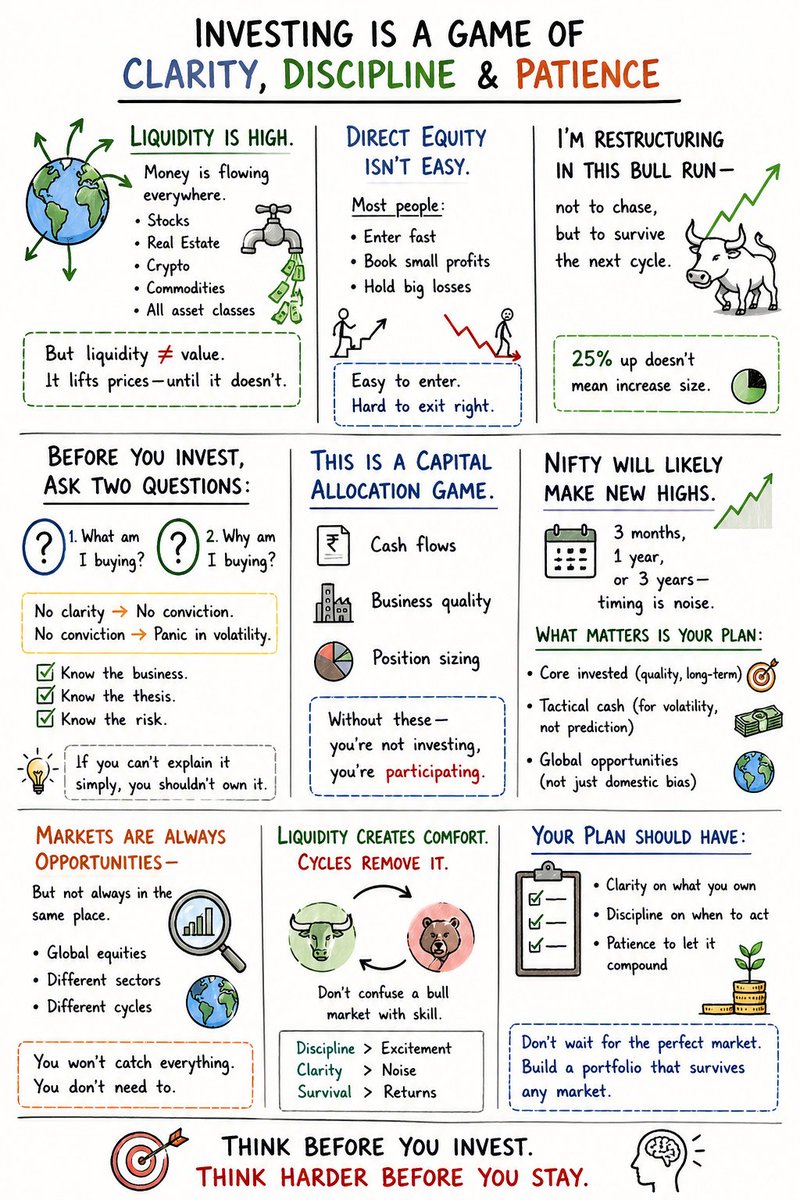 INVESTING IS A GAME OF
CLARITY, DISCIPLINE & PATIENCE
LIQUIDITY IS HIGH.
Money is flowing
everywhere.
• Stocks
• Real Estate
• Crypto
• Commodities
• All asset classes
But liquidity ≠ value.
It lifts prices—until it doesn't.
DIRECT EQUITY
ISN'T EASY.
Most people:
• Enter fast
• Book small profits
• Hold big losses
Easy to enter.
Hard to exit right.
I'M RESTRUCTURING
IN THIS BULL RUN—
not to chase,
but to survive
the next cycle.
25% up doesn't
mean increase size.
BEFORE YOU INVEST,
ASK TWO QUESTIONS:
? 1. What am
I buying?
? 2. Why am
I buying?
No clarity → No conviction.
No conviction → Panic in volatility.
Know the business.
Know the thesis.
Know the risk.
If you can't explain it
simply, you shouldn't own it.
THIS IS A CAPITAL
ALLOCATION GAME.
₹
Cash flows
Business quality
Position sizing
Without these—
you're not investing,
you're participating.
NIFTY WILL LIKELY
MAKE NEW HIGHS.
3 months,
1 year,
or 3 years—
timing is noise.
WHAT MATTERS IS YOUR PLAN:
• Core invested (quality, long-term)
• Tactical cash (for volatility,
not prediction)
• Global opportunities
(not just domestic bias)
MARKETS ARE ALWAYS
OPPORTUNITIES—
But not always in the
same place.
• Global equities
• Different sectors
• Different cycles
You won't catch everything.
You don't need to.
LIQUIDITY CREATES COMFORT.
CYCLES REMOVE IT.
Don't confuse a bull
market with skill.
Discipline > Excitement
Clarity > Noise
Survival > Returns
YOUR PLAN SHOULD HAVE:
• Clarity on what you own
• Discipline on when to act
• Patience to let it
compound
Don't wait for the perfect market.
Build a portfolio that survives
any market.
THINK BEFORE YOU INVEST.
THINK HARDER BEFORE YOU STAY.